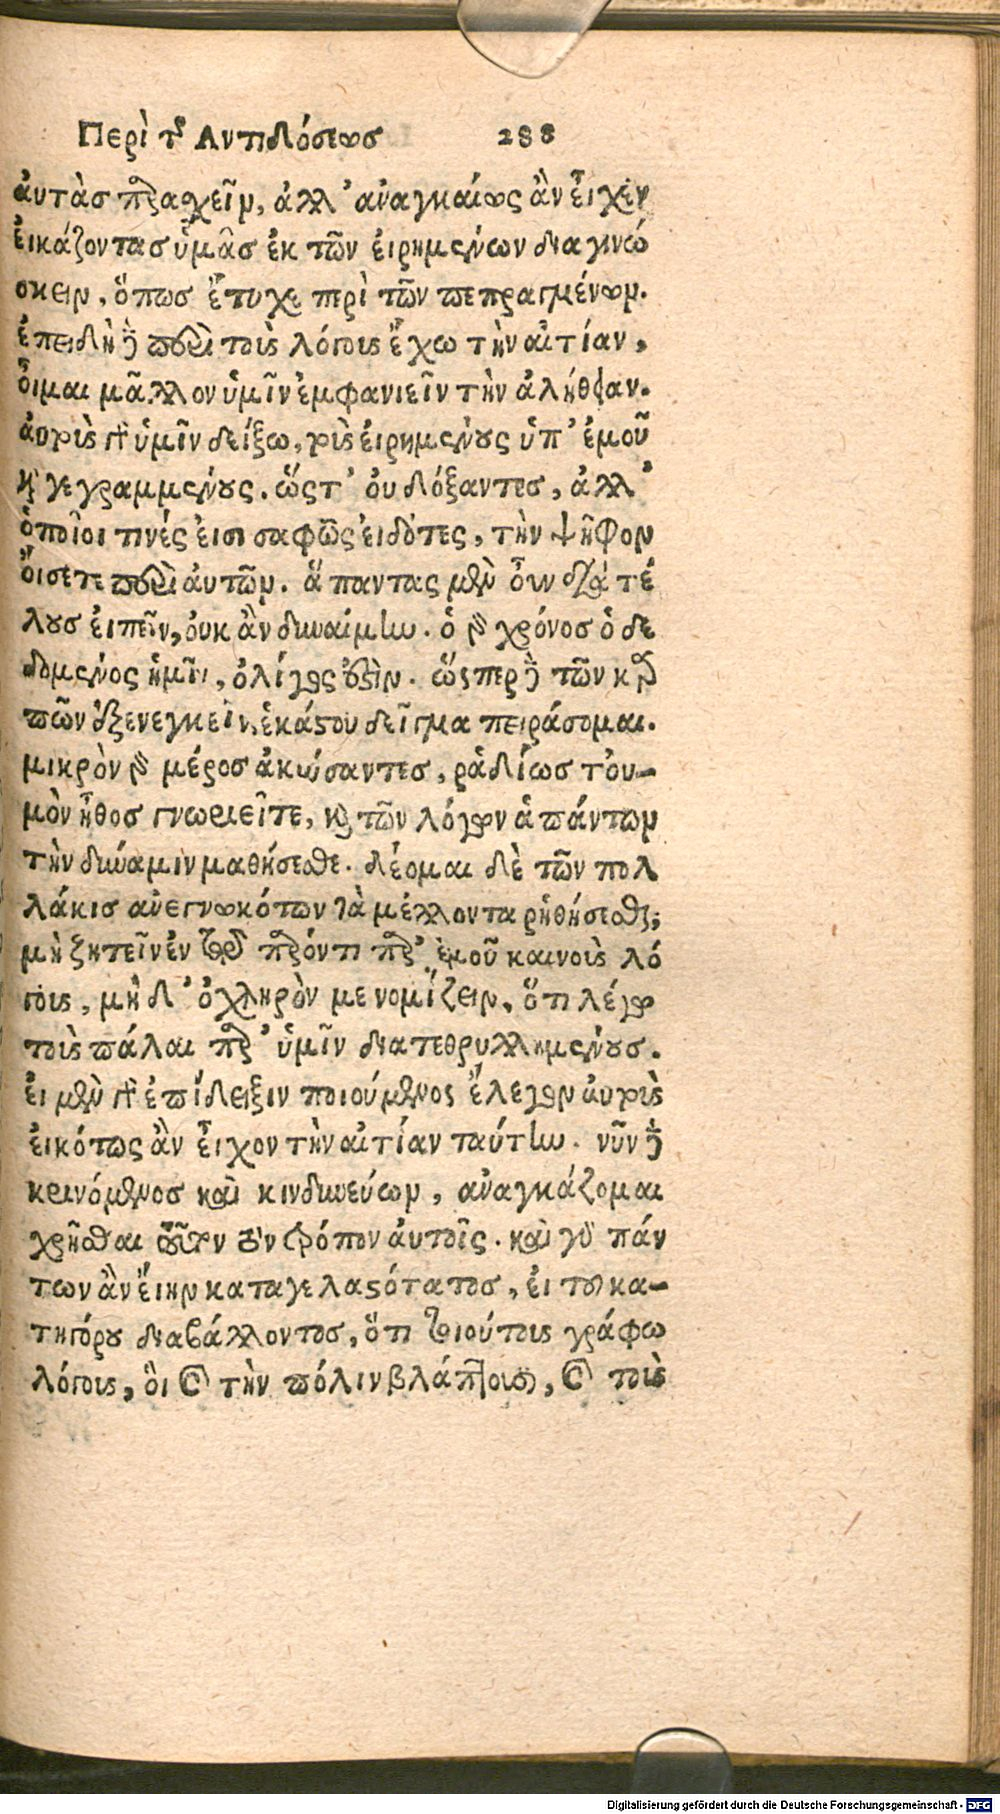 Περὶ τῆς Ἀντιδόσεως 288
ἀυτὰς παραχεῖν, ἀλλ' ἀναγκαίως ἂν εἶχεν
εἰκάζοντας ὑμᾶς ἐκ τῶν εἰρημένων διαγινώ
σκειν, ὅπως ἔτυχε περὶ τῶν πεπραγμένων.
ἐπειδὴ δὲ περὶ τοὺς λόγους ἔχω τὴν αἰτίαν,
οἶμαι μᾶλλον ὑμῖν ἐμφανιεῖν τὴν ἀλήθειαν.
ἀυτοὺς γὰρ ὑμῖν δείξω, τοὺς εἰρημένους ὑπ' ἐμοῦ
καὶ γεγραμμένους. ὥστ' οὐ δόξαντες, ἀλλ'
ὁποῖοι τινές εἰσι σαφῶς εἰδότες, τὴν ψῆφον
οἴσετε περὶ ἀυτῶν. ἅπαντας μὲν οὖν διὰ τέ
λους εἰπεῖν, οὐκ ἂν δυναίμην. ὁ γὰρ χρόνος ὁ δε
δομένος ἡμῖν, ὀλίγος ἐστίν. ὥσπερ δὲ τῶν καρ
πῶν ἐξενεγκεῖν, ἑκάστου δεῖγμα πειράσομαι.
μικρὸν γὰρ μέρος ἀκούσαντες, ῥαδίως τοὐ-
μὸν ἦθος γνωριεῖτε, καὶ τῶν λόγων ἁπάντων
τὴν δύναμιν μαθήσεσθε. δέομαι δὲ τῶν πολ
λάκις ἀνεγνωκότων τὰ μέλλοντα ῥηθήσεσθαι,
μὴ ζητεῖν ἐν τῷ παρόντι παρ' ἐμοῦ καινοὺς λό
γους, μηδ' ὀχληρὸν με νομίζειν, ὅτι λέγω
τοὺς πάλαι παρ' ὑμῖν διατεθρυλλημένους.
εἰ μὲν γὰρ ἐπίδειξιν ποιούμενος ἔλεγον ἀυτοὺς
εἰκότως ἂν εἶχον τὴν αἰτίαν ταύτην. νῦν δὲ
κρινόμενος καὶ κινδυνεύων, ἀναγκάζομαι
χρῆσθαι τοῦτον τὸν τρόπον ἀυτοῖς. καὶ γὰρ πάν
των ἂν εἴην καταγελαστότατος, εἰ τοῦ κα-
τηγόρου διαβάλλοντος, ὅτι τοιούτους γράφω
λόγους, οἳ καὶ τὴν πόλιν βλάπτουσι, καὶ τοὺς
Digitalisierung gefördert durch die Deutsche Forschungsgemeinschaft - DFG